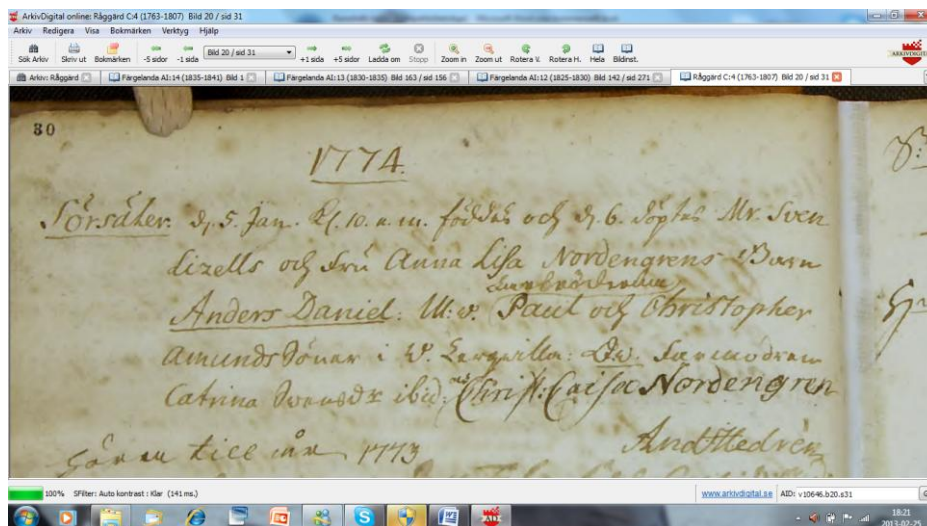 ArkivDigital online: Råggärd C:4 (1763-1807) Bild 20 / sid 31
Arkiv Redigera Visa Bokmärken Verktyg Hjälp
Sök Arkiv Skriv ut Bokmärken -5 sidor -1 sida Bild 20 / sid 31 +1 sida +5 sidor Ladda om Stopp Zoom in Zoom ut Rotera V. Rotera H. Hela Bildinst. ARKIVDIGITAL
Arkiv: Råggärd Färgelanda AI:14 (1835-1841) Bild 1 Färgelanda AI:13 (1830-1835) Bild 163 / sid 156 Färgelanda AI:12 (1825-1830) Bild 142 / sid 271 Råggärd C:4 (1763-1807) Bild 20 / sid 31
30
1774.
Sörsäter. d. 5. Jan. Kl. 10. a. m. föddes och d. 6. döptes Mr. Sven
Lizells och Fru Anna Lisa Nordengrens Barn
Farbröderna
Anders Daniel: W: w. Paul och Christopher
Amunds Söner i W. : Qw. Farmodren
Catrina Svensdr ibid: Christ: Caisa Nordengren
And Hedrén
höra till 1773
100% SFilter: Auto kontrast : Klar (141 ms.) www.arkivdigital.se AID: v10646.b20.s31
18:21
2013-02-25